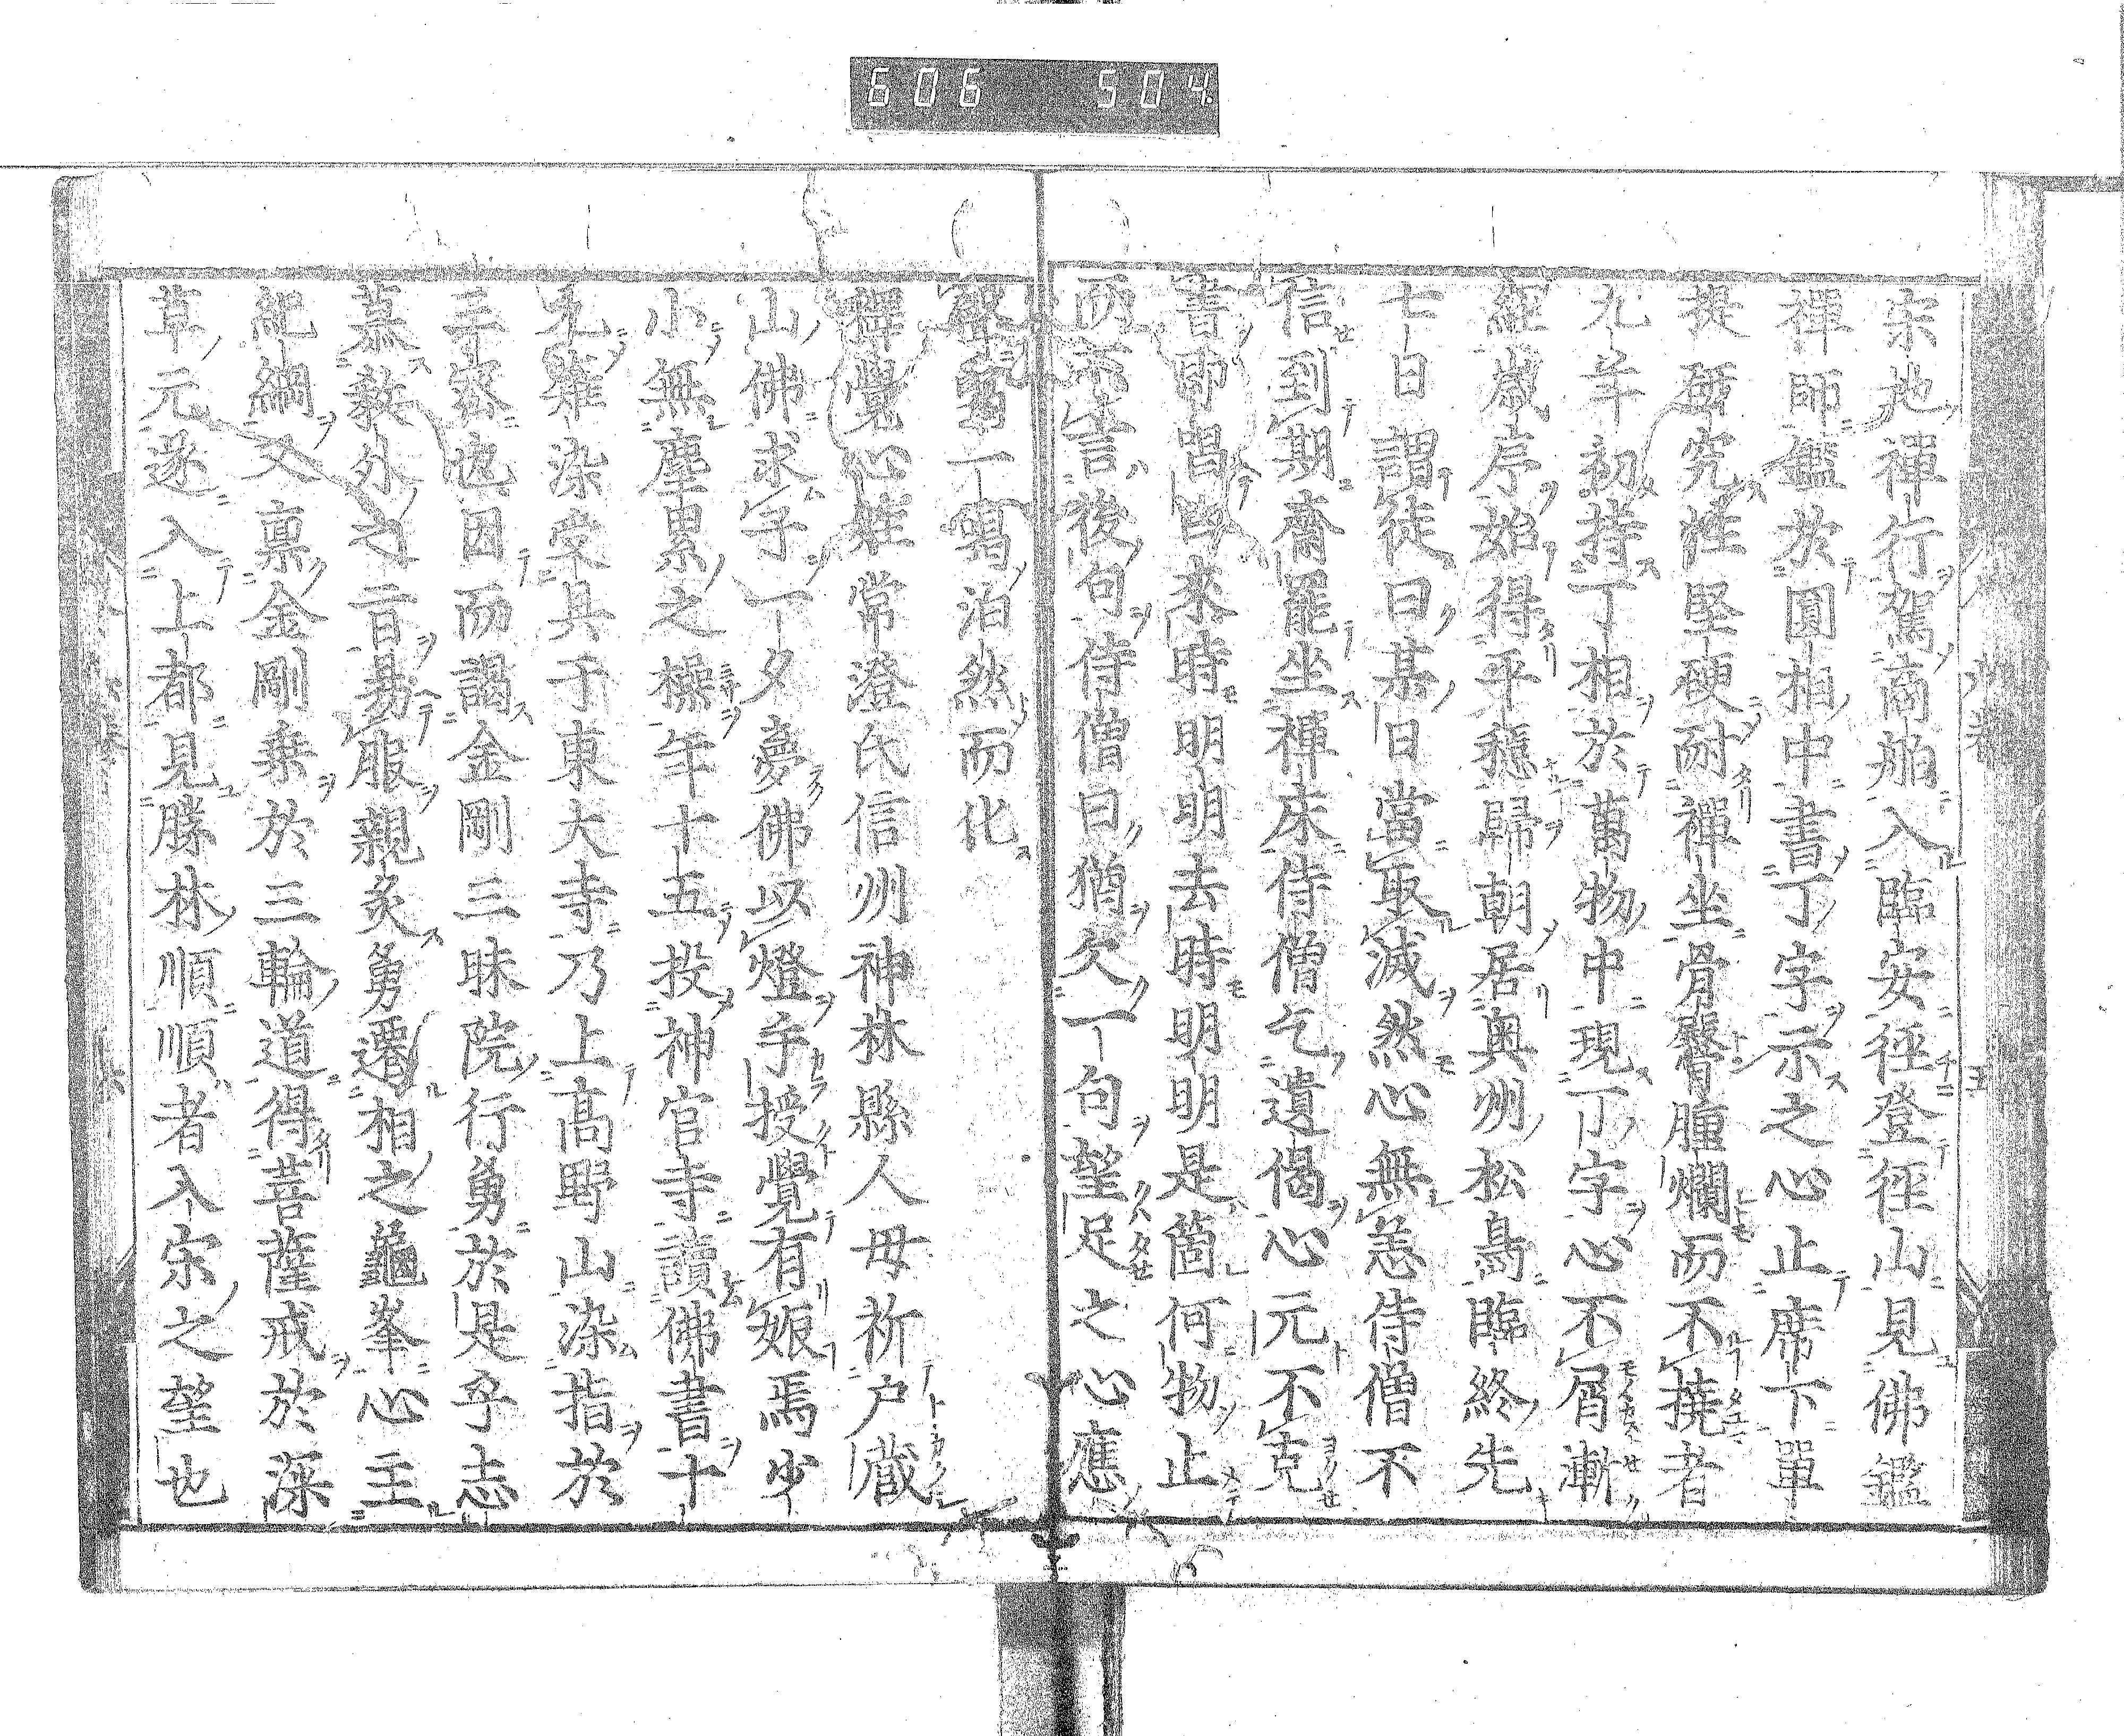 606 504
宋地禪行駕商舶入臨安徑登徑山見佛鑑
禪師鑑於圓相中書丁字示之心止席下單
提研究性堅硬耐禪坐骨臀腫爛而不撓者
九年初持丁相於萬物中現丁字心不屑漸
經歳序始得平穩歸朝居奥州松島臨終先
七日謂徒曰某日當取滅然心無恙侍僧不
信到期齋罷坐禪床侍僧乞遺偈心元不克
書即唱曰來時明明去時明明是箇何物止
而不言後句侍僧曰猶欠一句望足之心應
聲 一喝泊然而化
釋覺心姓常澄氏信州神林縣人母祈戸蔵
山佛求子一夕夢佛以燈手授覺有娠焉少
小無塵累之操年十五投神官寺讀佛書十
九薙染受具于東大寺乃上高野山染指於
三密也因而謁金剛三昧院行勇於是乎志
慕教外之旨易服親炙勇遷相之龜峯心主
紀綱又禀金剛乗於三輪道得菩薩戒於深
草元遂入上都見勝林順順者入宋之望也